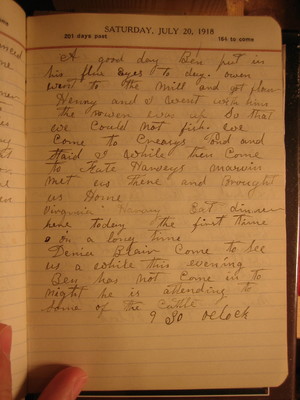 SATURDAY, JULY 20, 1918
201 days past 164 to come
A good day Ben put in
his flue Eyes to day. owen
went to the mill and got flour
Henny and I went with him
the River was up So that
we Could not fish. we
Come to Crearys Pond and
Staid a while then Come
to Kate Harveys marvin
met us there and Brought
us Home
Virginia Harvey Eat dinner
here today the first time
in a long time
Denies Blair Come to See
us a while this evening
Ben has not Come in to
night he is attending to
Some of the Cattle
9 30 oclock